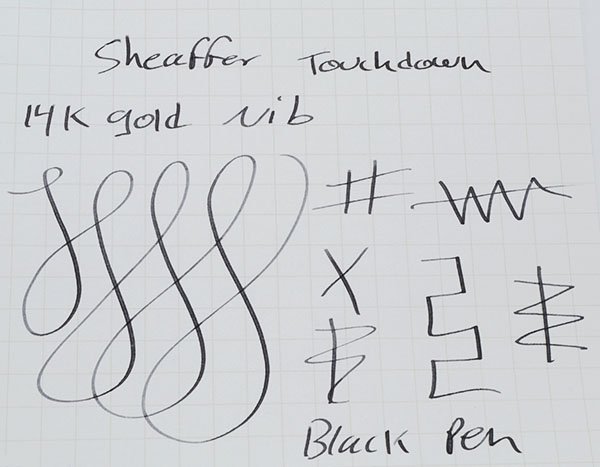 Sheaffer Touchdown
14K gold nib
#
X
Black Pen